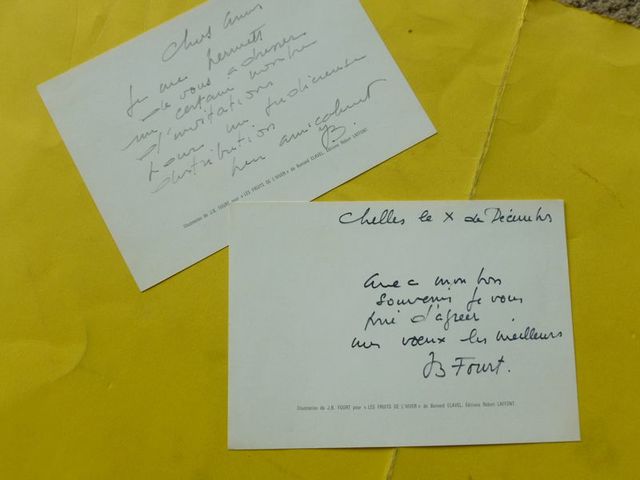 Chers amis
Je me permets
de vous adresser
un certain nombre
d'invitations
pour une judicieuse
distribution
bien amicalement
JB.
Illustration de J.B. FOURT pour « LES FRUITS DE L'HIVER » de Bernard CLAVEL, Editions Robert LAFFONT
Chelles le X de Décembre
avec mon bon
souvenir je vous
prie d'agréer
mes vœux les meilleurs
JB Fourt.
Illustration de J.B. FOURT pour « LES FRUITS DE L'HIVER » de Bernard CLAVEL, Editions Robert LAFFONT